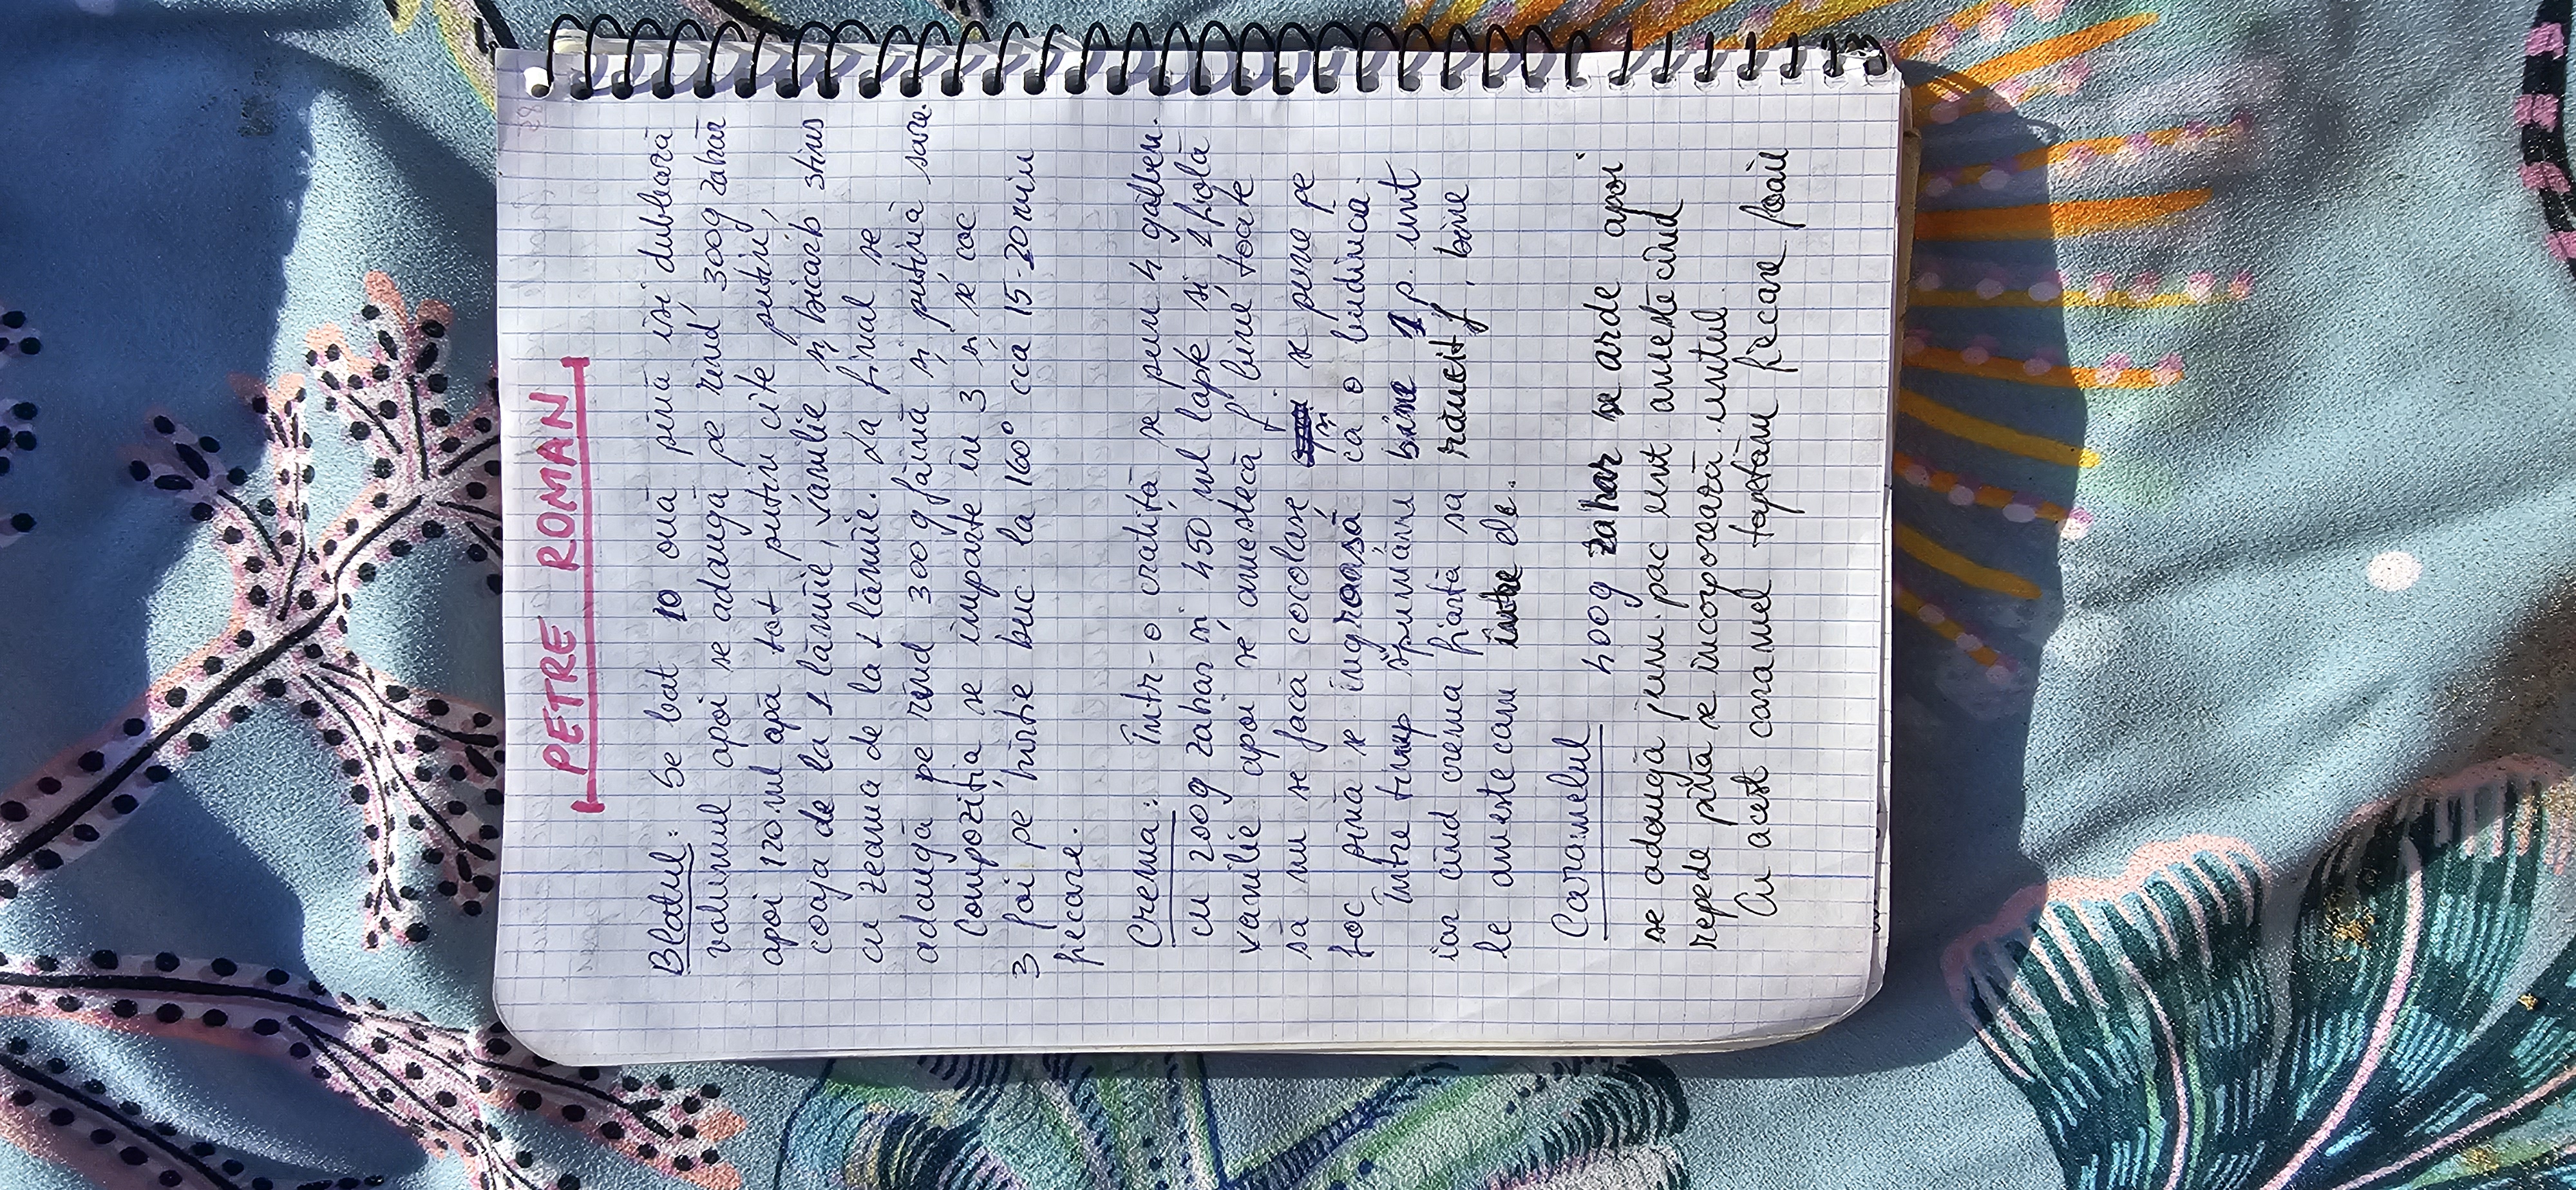 PETRE ROMAN
Blatul: Se bat 10 ouă pînă își dublează
volumul apoi se adaugă pe rînd 300g zahăr
apoi 120 ml apă tot puțin cîte puțin,
coaja de la 1 lămîie, vanilie și bicarb stins
cu zeama de la 1 lămîie. La final se
adaugă pe rînd 300g făină și puțină sare.
Compoziția se împarte în 3 și se coc
3 foi pe hîrtie buc. la 160° cca 15-20 min
fiecare.
Crema: Într-o cratiță se pun 4 gălben.
cu 200g zahar și 450 ml lapte și 1 fiolă
vanilie apoi se amestecă f bine toate
să nu se facă cocoloașe și se pune pe
foc pînă se îngroașă ca o budincă.
Între timp spumăm bine 1 p. unt
iar cînd crema fiartă sa răucit f. bine
le amestecam între ele.
Caramelul 400g zahar se arde apoi
se adaugă jum. pac unt amestecînd
repede pînă se încorporează untul.
Cu acest caramel tapetăm fiecare foaie